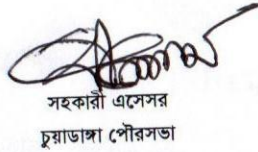 সহকারী এসেসর
চুয়াডাঙ্গা পৌরসভা